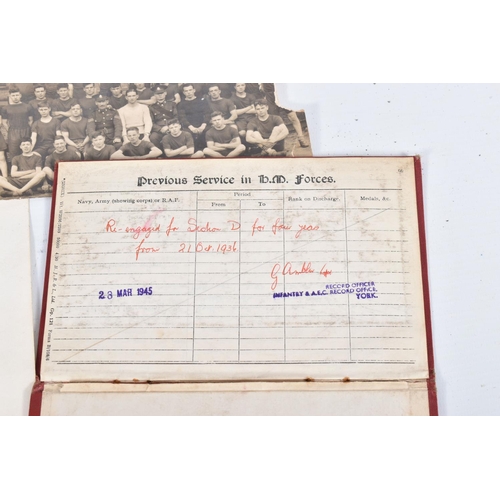 Previous Service in H.M. Forces.
Navy, Army (showing corps) or R.A.F.
Period
From
To
Rank on Discharge.
Medals, &c.
Re-engaged for Section D for four years
from 21 Oct. 1936.
28 MAR 1945
RECORD OFFICER
INFANTRY & A.E.C. RECORD OFFICE,
YORK.